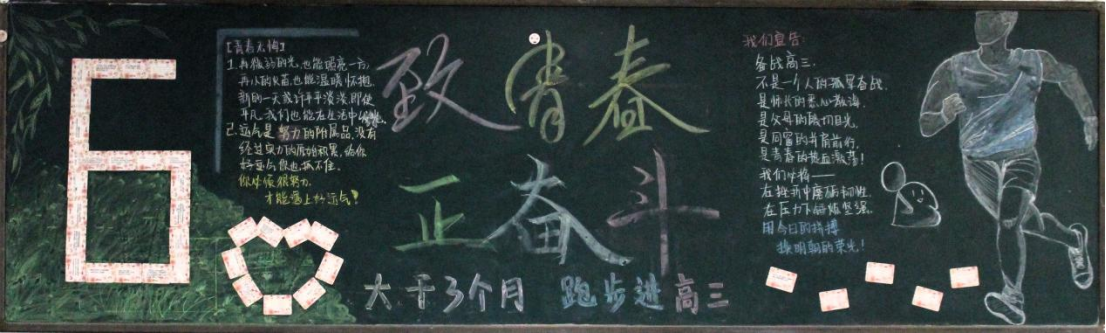 6
【青春不悔】
1.再微弱的光,也能照亮一方,
再小的火苗,也能温暖怀抱
新的一天或许平平淡淡,即使
平凡,我们也能在生活中
2.运气是努力的附属品,没有
经过实力的原始积累,给你
好运气你也抓不住。
你必须很努力,
才能遇上好运气!
致青春
正奋斗
大干3个月 跑步进高三
我们宣告:
备战高三,
不是一个人的孤军奋战,
是师长的悉心教诲,
是父母的殷切目光,
是同窗的并肩前行,
是青春的热血激荡!
我们坚持——
在挫折中磨砺韧性,
在压力下锤炼坚强,
用今日的拼搏
换明朝的荣光!